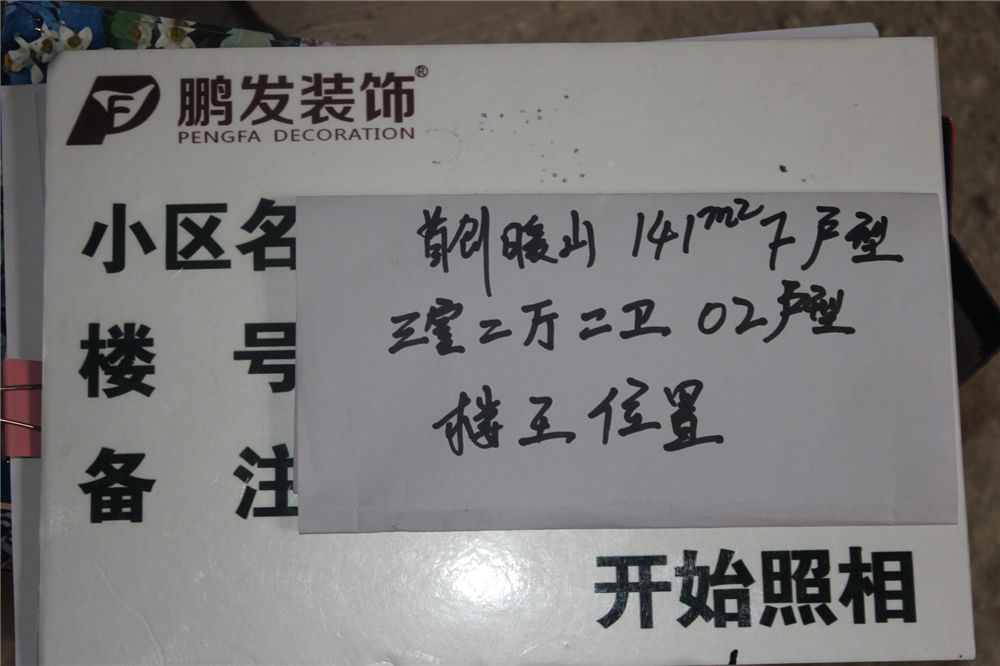 鹏发装饰®
PENGFA DECORATION
小区名
首创暖山 141m² F户型
三室二厅二卫 02户型
楼 号
楼王位置
备 注
开始照相